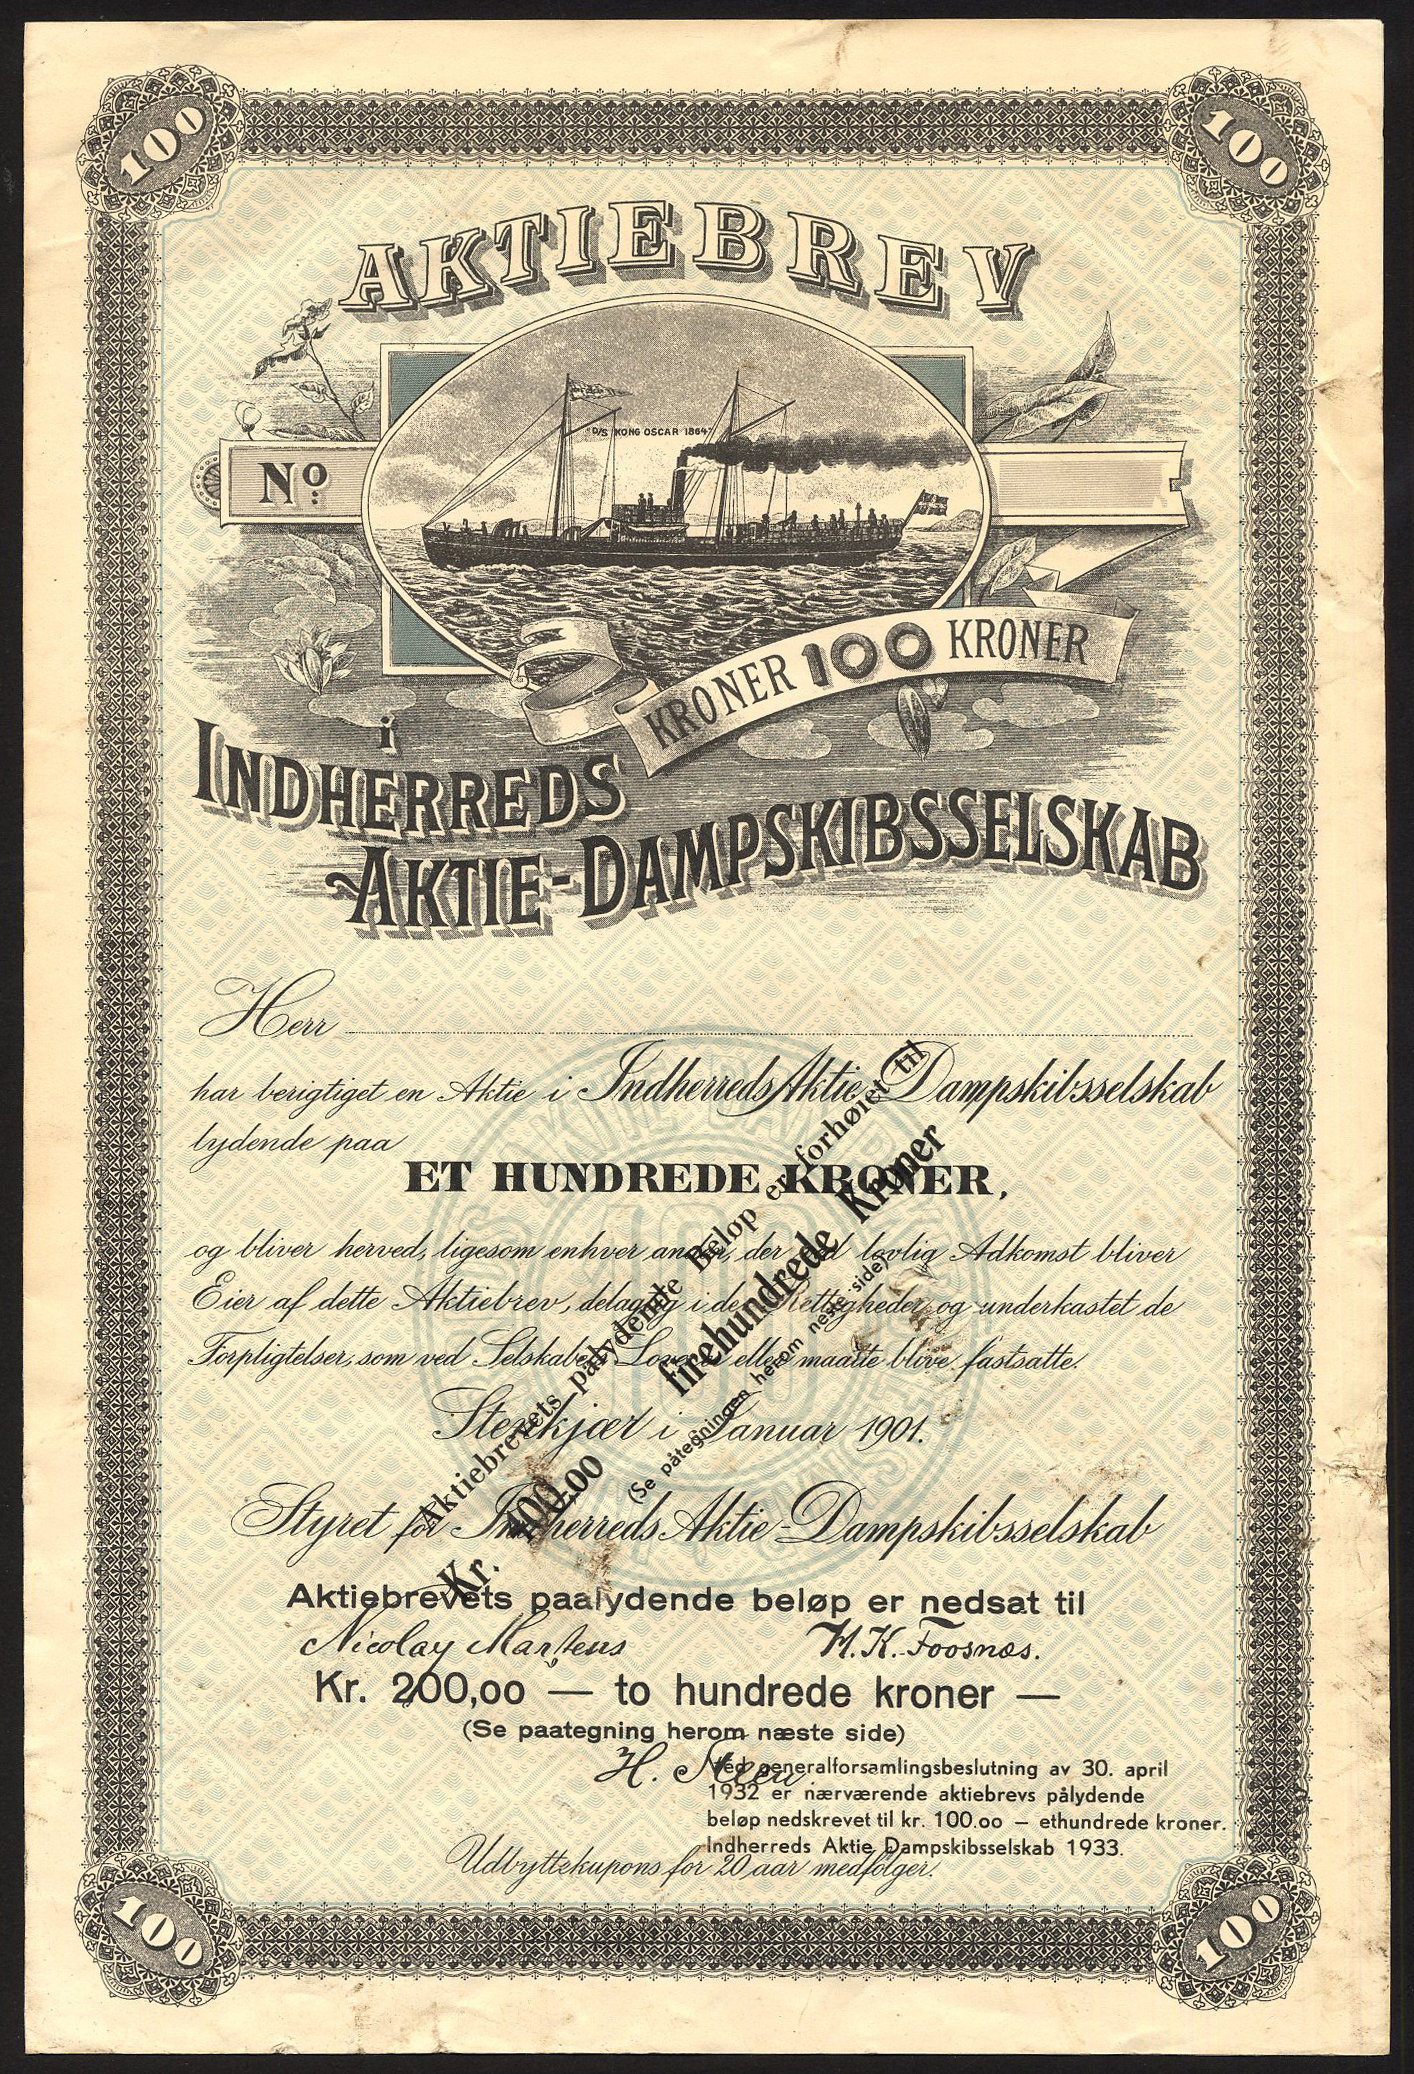 100
100
AKTIEBREV
"D/S KONG OSCAR 1864"
No
KRONER 100 KRONER
i
INDHERREDS
AKTIE-DAMPSKIBSSELSKAB
Herr
har berigtiget en Aktie i Indherreds Aktie-Dampskibsselskab
lydende paa
ET HUNDREDE KRONER,
og bliver herved, ligesom enhver anden, der ved lovlig Adkomst bliver
Eier af dette Aktiebrev, delagtig i de Rettigheder og underkastet de
Forpligtelser, som ved Selskabets Love er eller maatte blive fastsatte.
Stenkjær i Januar 1901.
Styret for Indherreds Aktie-Dampskibsselskab
Aktiebrevets pålydende Beløp er forhøiet til
Kr. 400.00 firehundrede Kroner
(Se påtegningen herom neste side)
Aktiebrevets paalydende beløp er nedsat til
Nicolay Martens H. K. Foosnæs.
Kr. 200,00 — to hundrede kroner —
(Se paategning herom næste side)
H. Steen
Ved generalforsamlingsbeslutning av 30. april
1932 er nærværende aktiebrevs pålydende
beløp nedskrevet til kr. 100.00 — ethundrede kroner.
Indherreds Aktie Dampskibsselskab 1933.
Udbyttekupons for 20 aar medfølger.
100
100